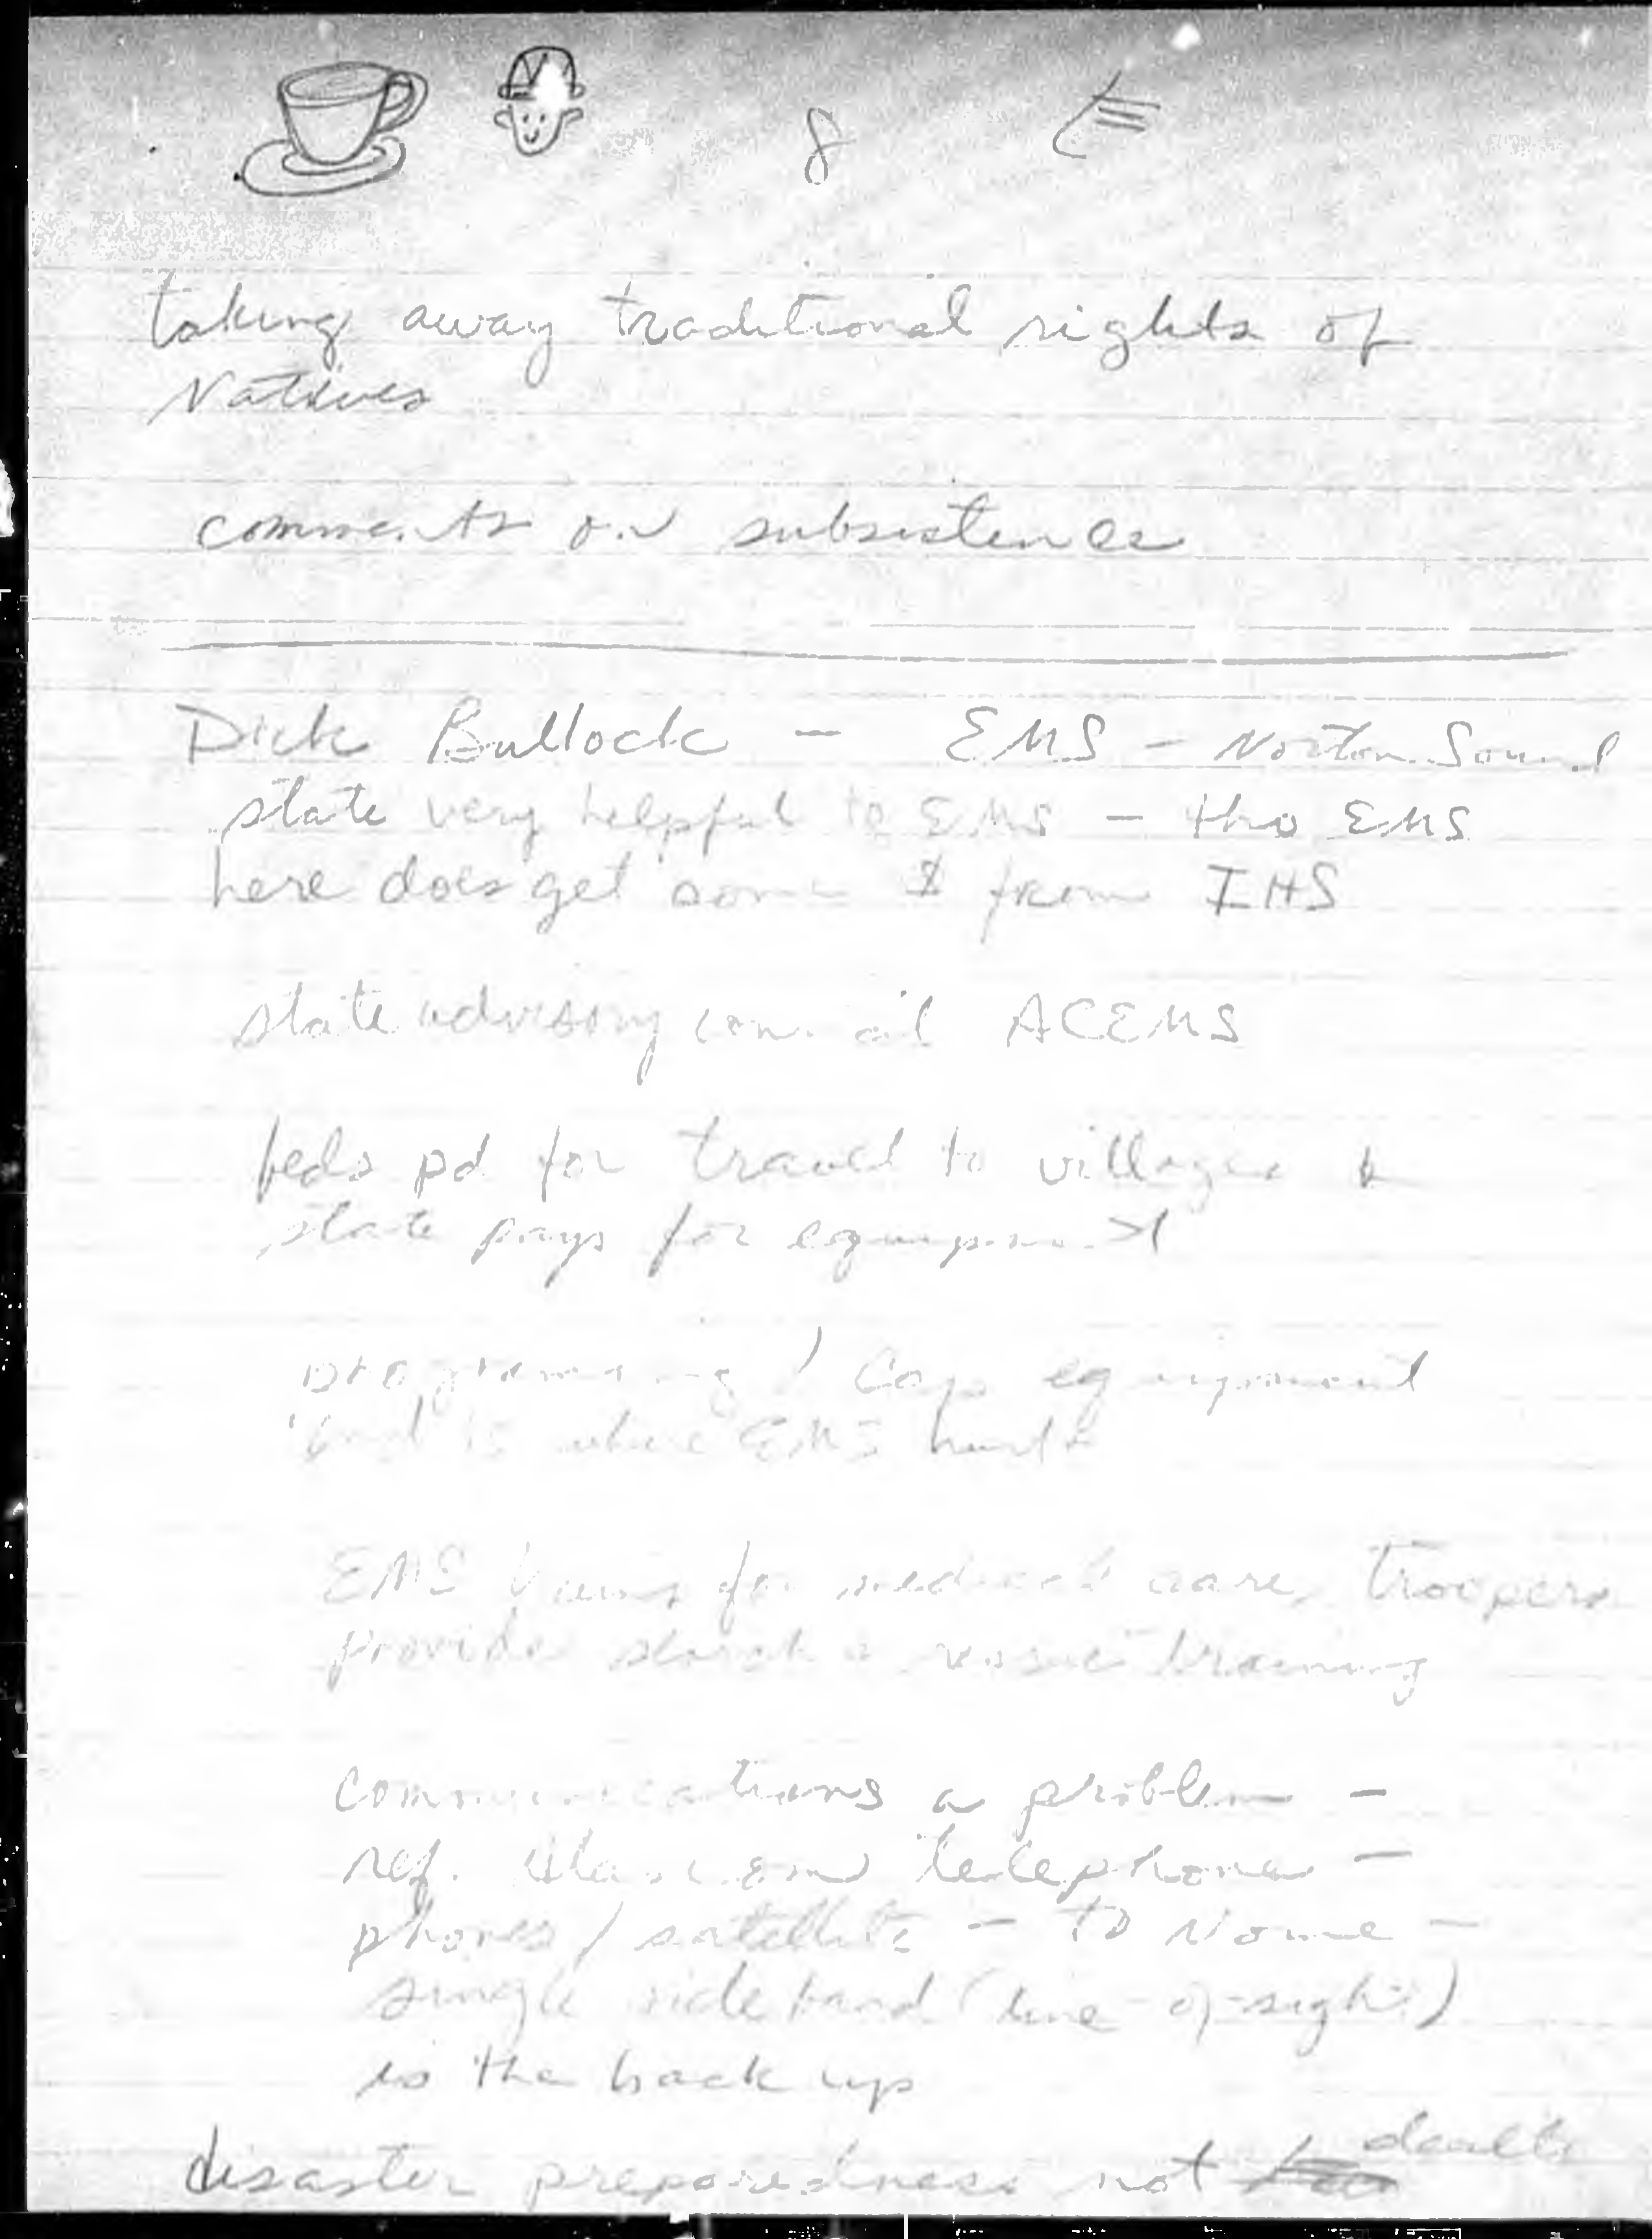 8
taking away traditional rights of
Natives
comments on subsistence
Dick Bullock - EMS - Norton Sound
state very helpful to EMS - tho EMS
here does get some $ from IHS
state advisory council ACEMS
feds pd for travel to villages &
state pays for equipment
programming / Cap equipment
is where EMS hurts
EMS trains for medical care, troopers
provide search & rescue training
communications a problem -
ref. Alascom telephone -
phones / satellite - to Nome -
single sideband (line-of-sight)
is the back up
disaster preparedness not dealt